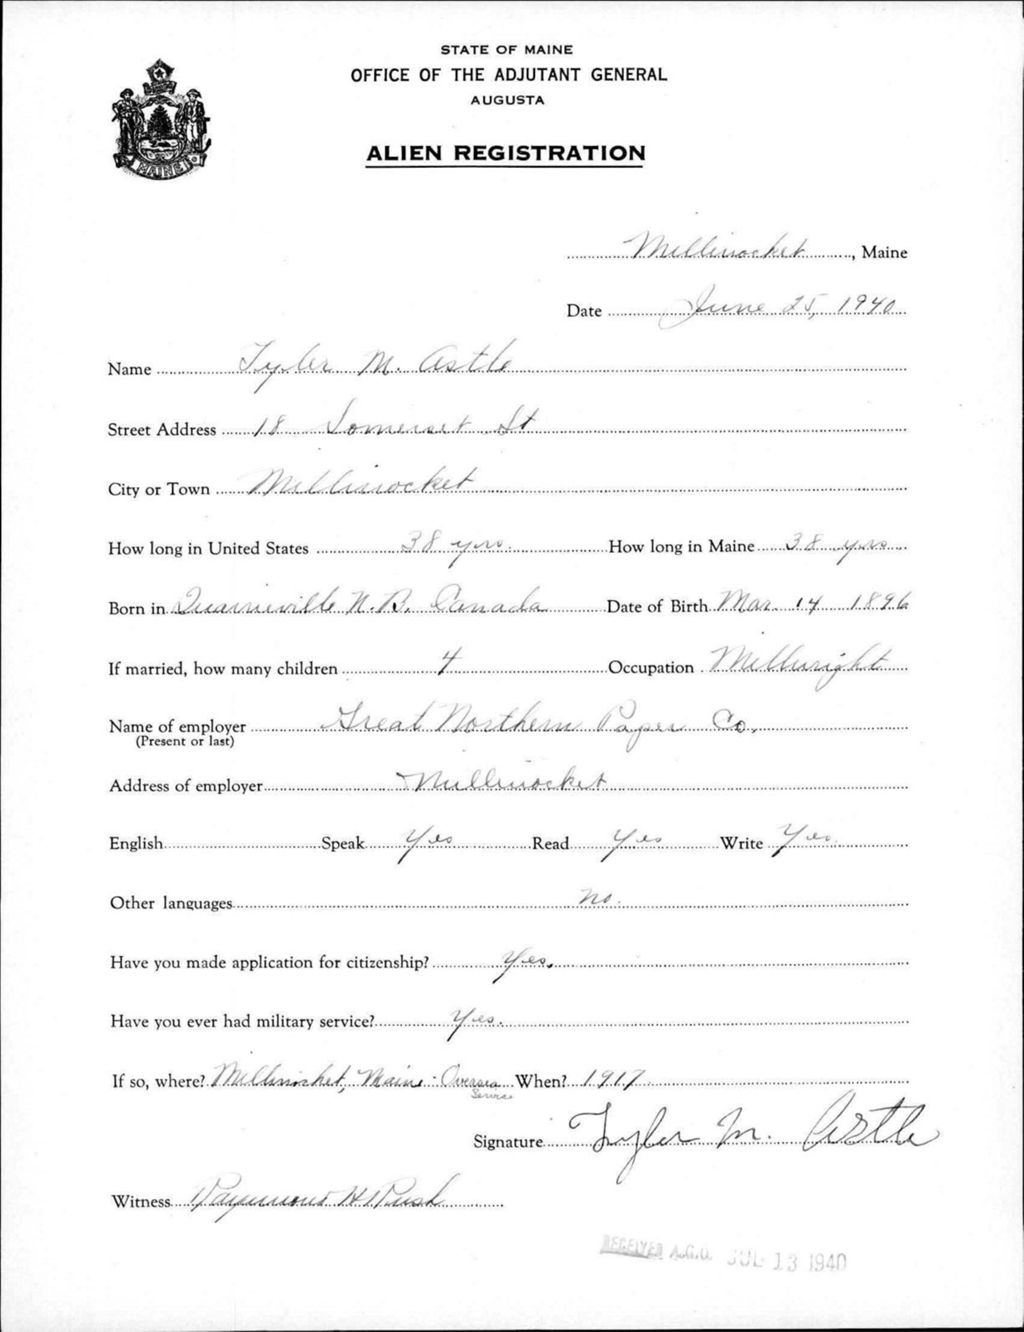 STATE OF MAINE
OFFICE OF THE ADJUTANT GENERAL
AUGUSTA
MAINE
ALIEN REGISTRATION
Millinocket, Maine
Date June 25, 1940
Name Tyler M. Astle
Street Address 18 Somerset St
City or Town Millinocket
How long in United States 38 yrs. How long in Maine 38 yrs
Born in N.B. Canada Date of Birth Mar. 14 1896
If married, how many children 4 Occupation Millwright
Name of employer Great Northern Paper Co.
(Present or last)
Address of employer Millinocket
English Speak Yes Read Yes Write Yes.
Other languages no.
Have you made application for citizenship? Yes.
Have you ever had military service? Yes.
If so, where? Millinocket, Maine - Oversea Service When? 1917
Signature Tyler M. Astle
Witness Raymond H Rush
RECEIVED A.G.O. JUL 13 1940